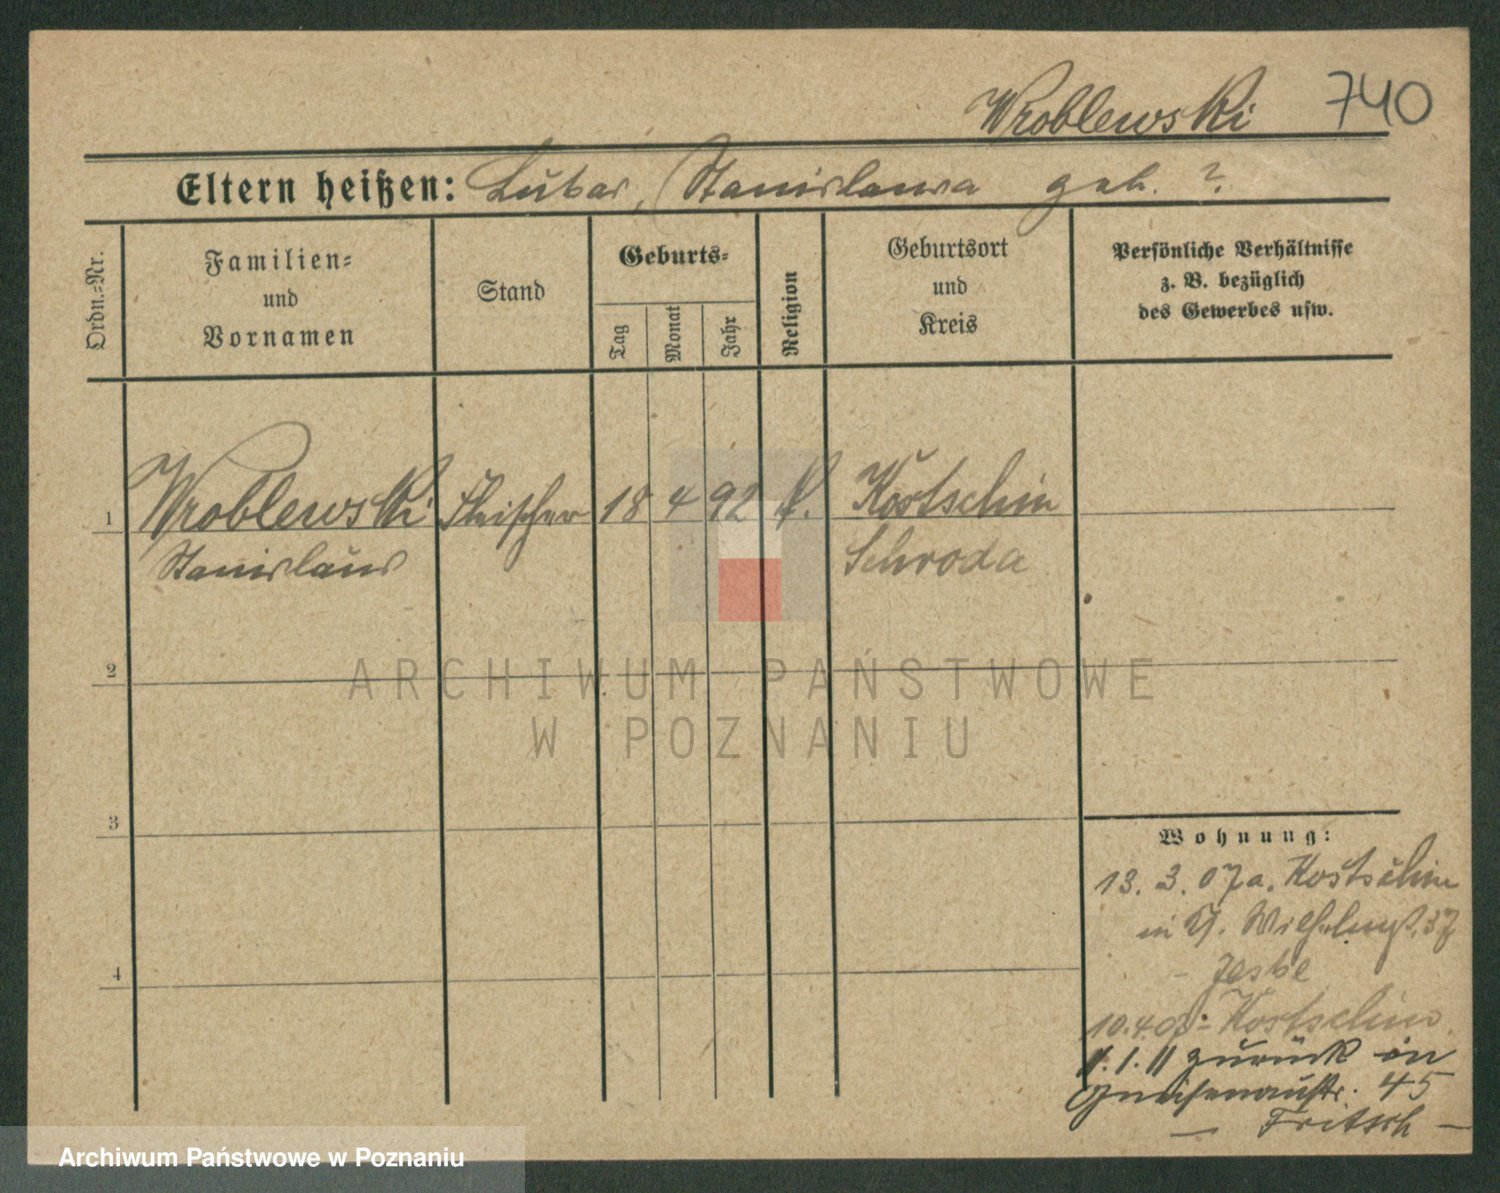 Wroblewski 740
Eltern heißen: Lubar, Stanislawa geb. ?
Ordn.-Nr.
Familien-
und
Vornamen
Stand
Geburts-
Tag
Monat
Jahr
Religion
Geburtsort
und
Kreis
Persönliche Verhältnisse
z. B. bezüglich
des Gewerbes usw.
1 Wroblewski Fleischer 18 4 92 k. Kostschin
Stanislaus Schroda
2
3
4
Wohnung:
13. 3. 07 a. Kostschin
in J. Wilhelmst. 37
- Jeske
10.4.07 - Kostschin
11.1.11 zurück in
Gneisenaustr. 45
— Fritsch —
ARCHIWUM PAŃSTWOWE
W POZNANIU
Archiwum Państwowe w Poznaniu